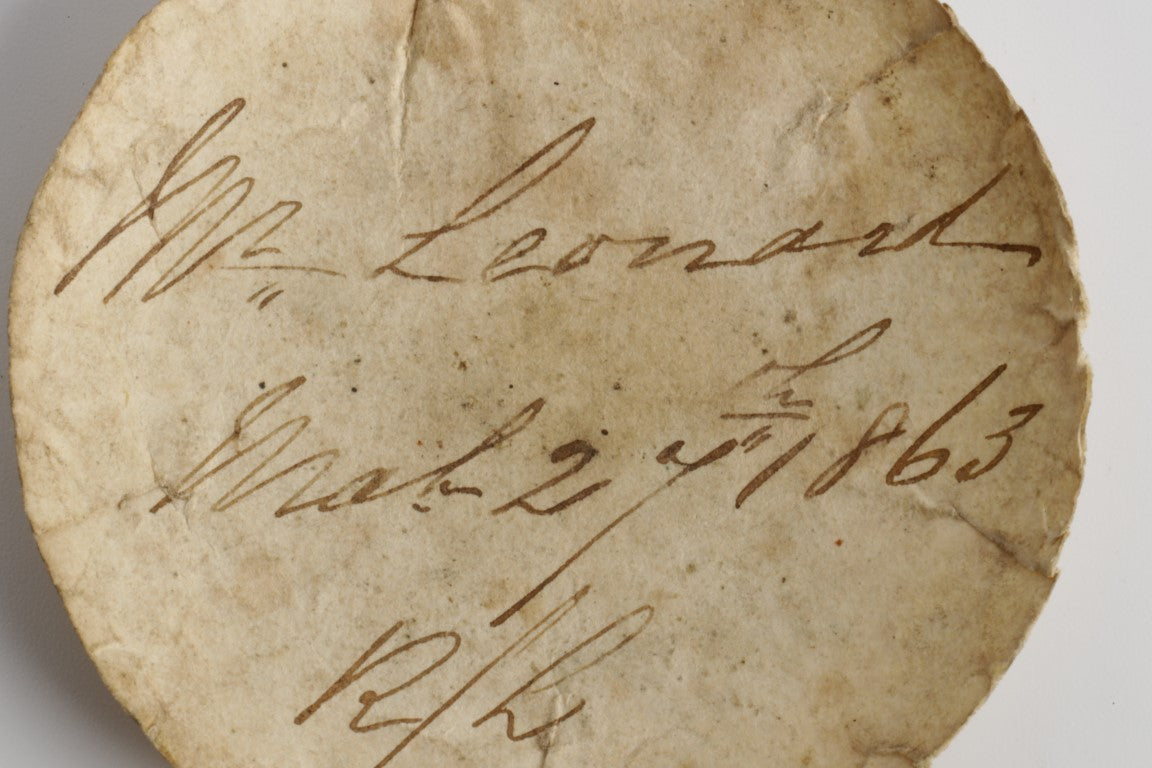 Mr Leonard
Mah 27th 1863
R/L